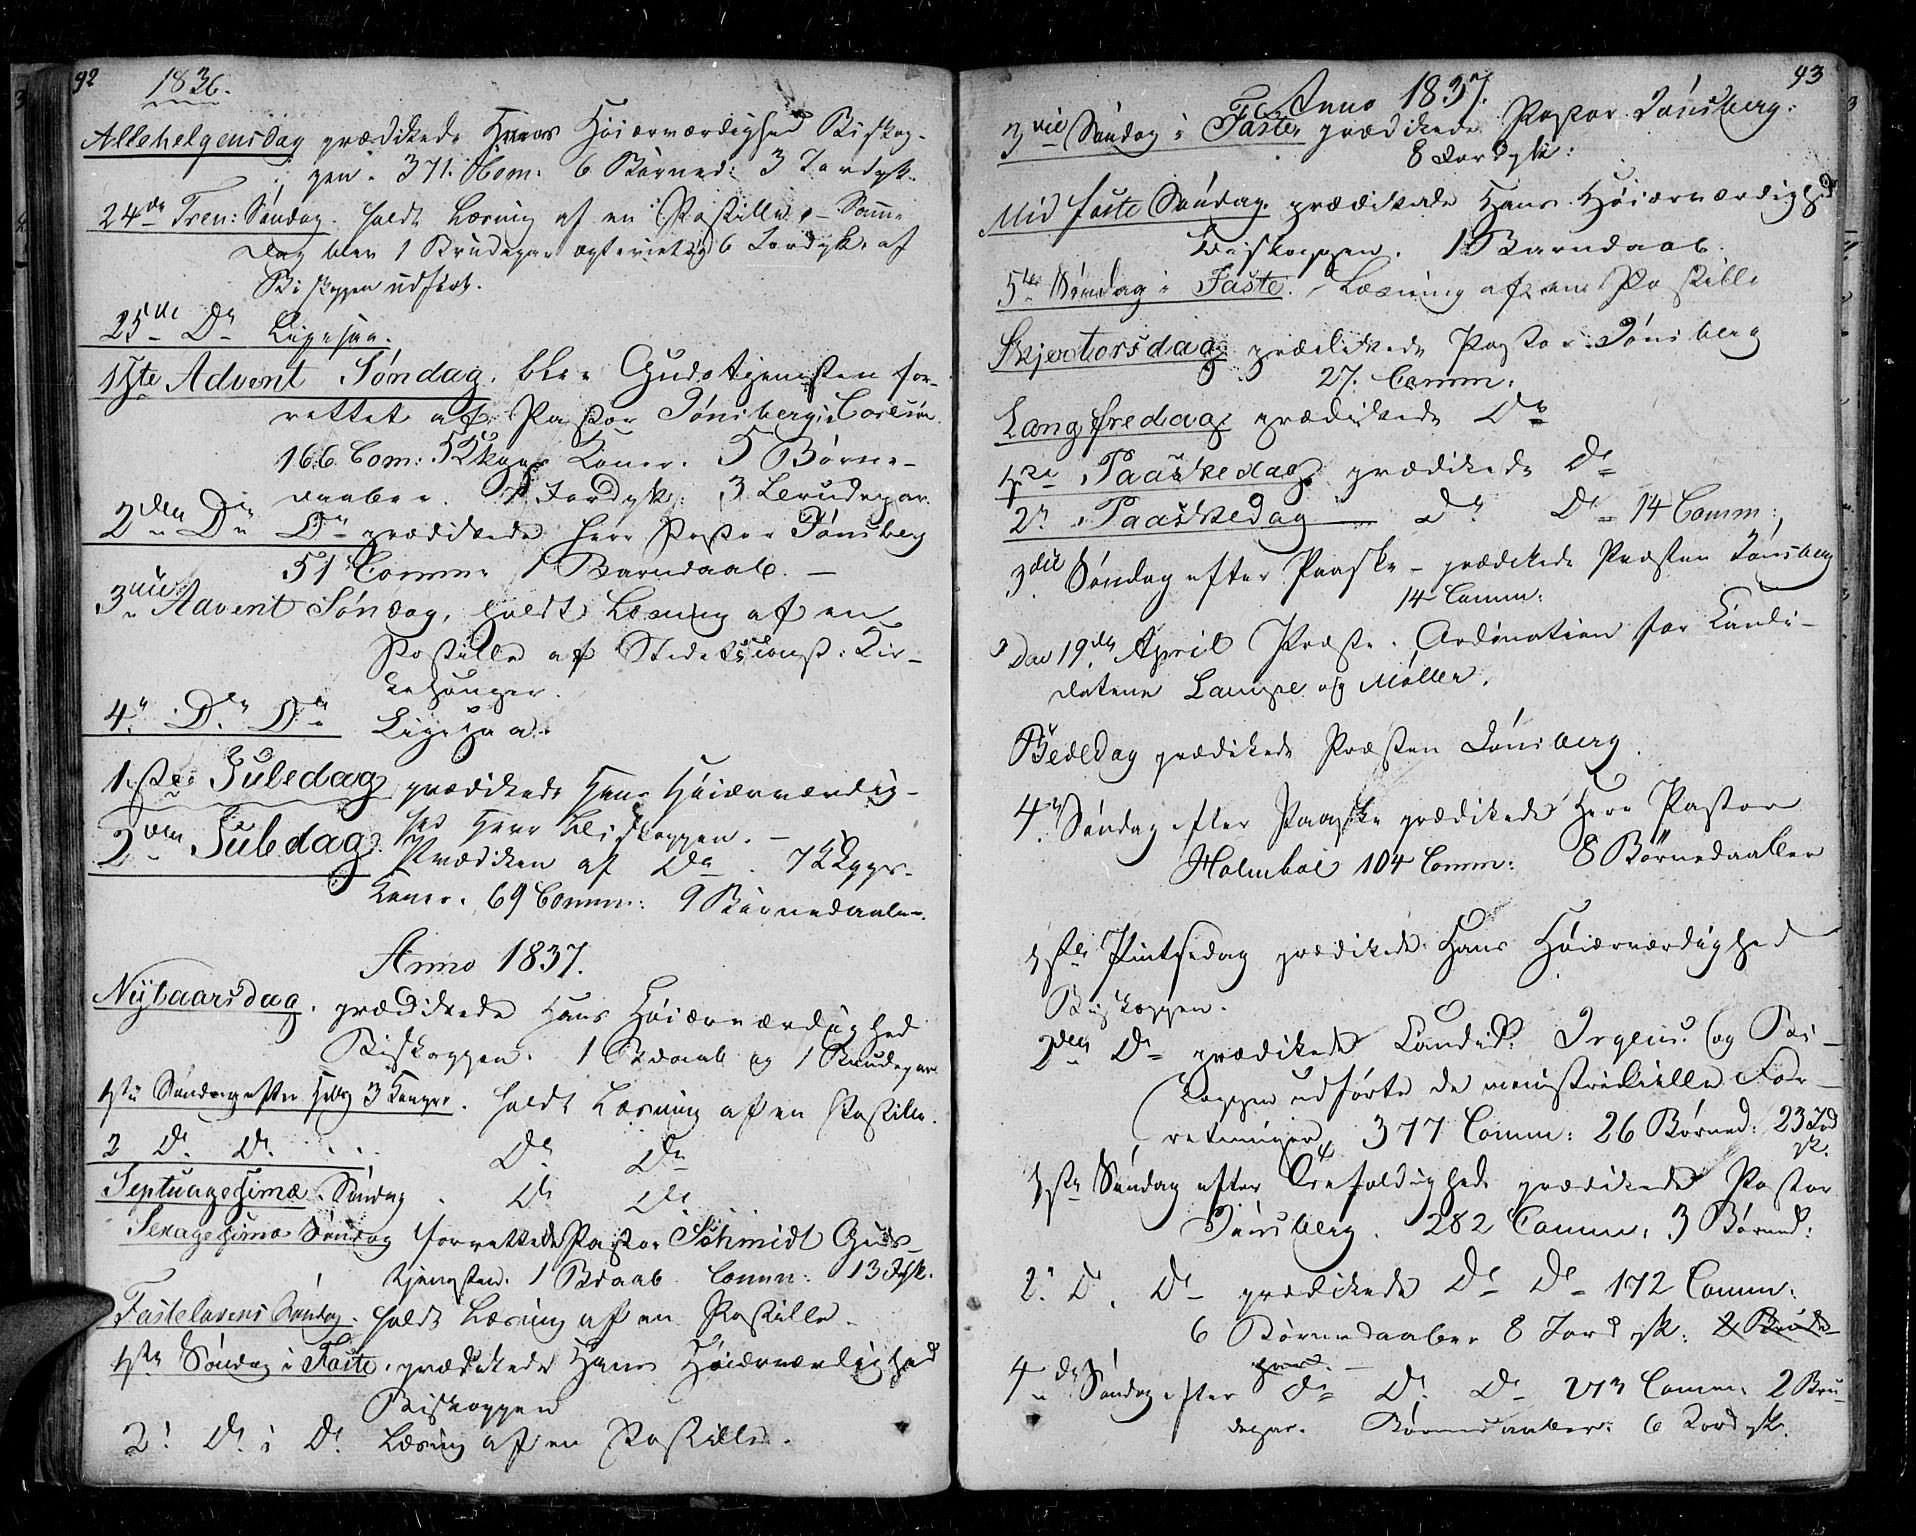 92
1836.
Allehelgensdag prædikede Hans Høiærværdighed Biskop-
pen. 371. Com: 6 Børned: 3 Jordpk.
24de Tren: Søndag. holdt Læsning af en Postille. – Samme
Dag blev 1 Brudepar egteviet og 6 Jordpk. af
Biskoppen udført.
25de Do Ligesaa.
1ste Advent Søndag. blev Gudstjenesten for-
rettet af Pastor Jønsberg i
166 Com: 5 Koner. 5 Børne-
daaber. 7 Jordpk: 3 Brudepar
2den Do Do prædikede Herr Pastor Jønsberg
51 Comm: 1 Barndaab. –
3die Advent Søndag, holdt Læsning af en
Postille af Stedets const: Kir-
kesanger.
4. Do Do Ligesaa.
1ste Juledag prædikede Hans Høiærværdig-
hed Herr Biskoppen. –
2den Juledag. Prædiken af Do. 7
Koner. 69 Comm: 9 Børnedaaber.
Anno 1837.
Nytaarsdag. prædikede Hans Høiærværdighed
Biskoppen. 1 Bdaab og 1 Brudepar
1ste Søndag efter Hellig 3 Konger. holdt Læsning af en Postille.
2 Do Do . . . Do Do
Septuagesimæ Søndag . Do Do
Sexagesima Søndag forrettede Pastor Schmidt Guds-
tjenesten. 1 Bdaab Comm: 13 Jpk.
Fastelavens Søndag. holdt Læsning af en Postille.
1ste Søndag i Faste. prædikede Hans Høiærværdighed
Biskoppen
2. Do i Do Læsning af en Postille.
93
Anno 1837.
3die Søndag i Faste prædikede Pastor Jønsberg.
8 Jordpk:
Mid faste Søndag. prædikede Hans Høiærværdighed
Biskoppen. 1 Barndaab.
5te Søndag i Faste. Læsning af en Postille
Skjertorsdag prædikede Pastor Jønsberg
27. Comm:
Langfredag prædikede Do
1ste Paaskedag prædikede Do
2n Paaskedag — Do Do 14 Comm:
3die Søndag efter Paaske – prædikede Præsten Jønsberg
14 Comm:
Den 19de April Præste Ordination for Candi-
daterne Lampe og Møller.
Bededag prædikede Præsten Jønsberg.
4. Søndag efter Paaske prædikede Herr Pastor
Holmboe 104 Comm: 8 Børnedaaber
1ste Pintsedag prædikede Hans Høiærværdighed
Biskoppen.
2den Do prædikede Candid. Irgens (og Bi-
skoppen udførte de ministerielle For-
retninger, 377 Comm: 26 Børned: 23 Jord
pk.
1ste Søndag efter Treefoldighed prædikede Pastor
Jønsberg. 282 Comm: 3 Børned:
2. D. Do prædikede Do Do 172 Comm:
6 Børnedaaber 8 Jordpk: 2 Brude-
par. –
4de Søndag efter Do Do Do Comm: 2 Bru-
depar. Børnedaaber: 6 Jordpk.